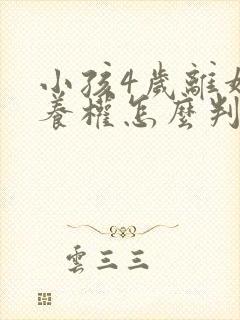 小孩4歲離婚
養權怎麼判
雲三三